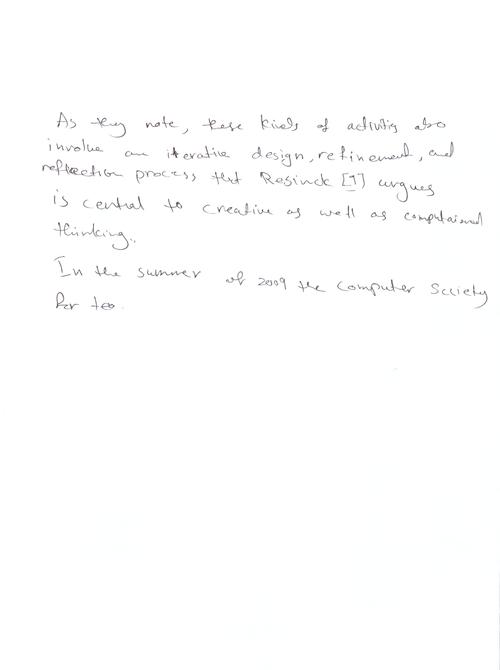 As they note, these kinds of activitis also
involve an iterative design, refinement, and
reflection process that Resinck [1] argues
is central to creative as well as computaional
thinking.
In the summer of 2009 the computer Society
for